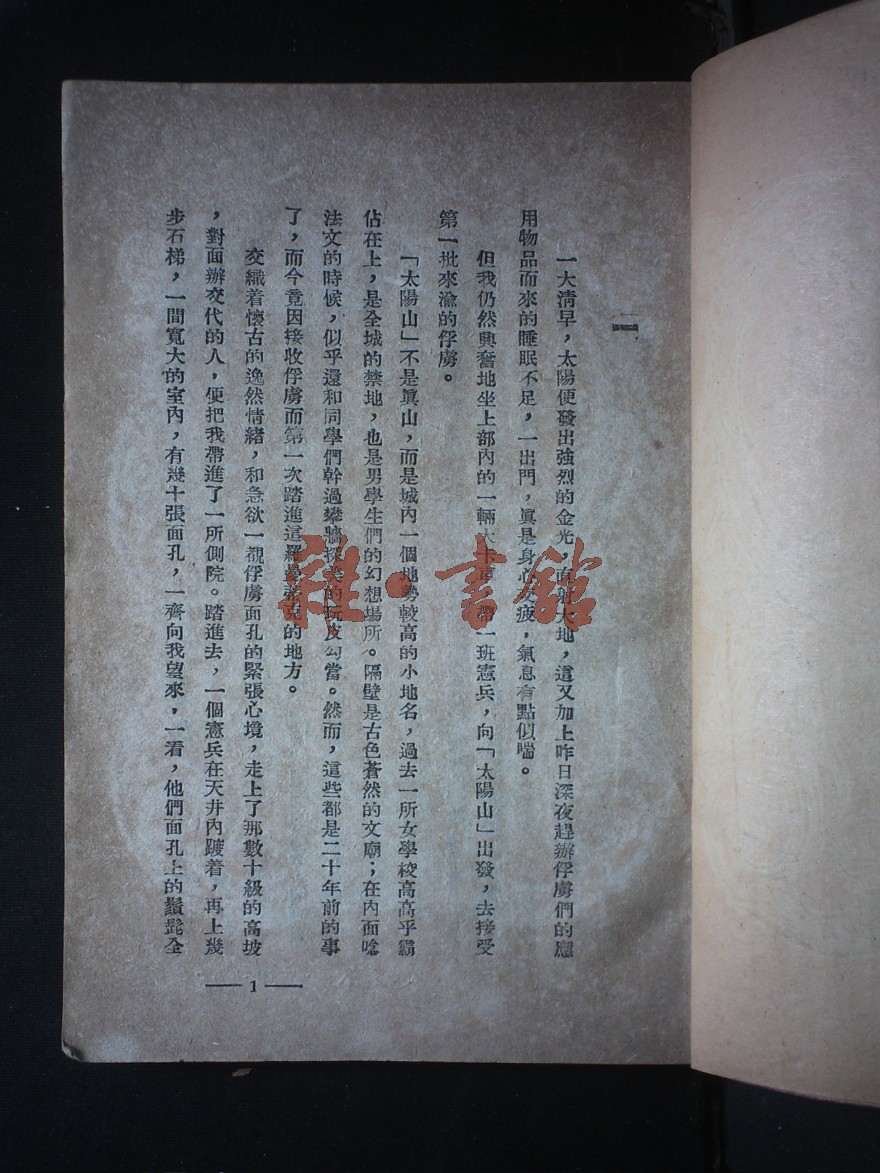 一
一大清早，太陽便發出強烈的金光，直射大地，這又加上昨日深夜趕辦俘虜們的應
用物品而來的睡眠不足，一出門，眞是身心交疲，氣息有點似喘。
但我仍然興奮地坐上部內的一輛大卡車，帶一班憲兵，向「太陽山」出發，去接受
第一批來渝的俘虜。
「太陽山」不是眞山，而是城內一個地勢較高的小地名，過去一所女學校高高乎霸
佔在上，是全城的禁地，也是男學生們的幻想場所。隔壁是古色蒼然的文廟；在內面唸
法文的時候，似乎還和同學們幹過攀牆探美的玩皮勾當。然而，這些都是二十年前的事
了，而今竟因接收俘虜而第一次踏進這羅曼蒂克的地方。
交織着懷古的逸然情緒，和急欲一覩俘虜面孔的緊張心境，走上了那數十級的高坡
，對面辦交代的人，便把我帶進了一所側院。踏進去，一個憲兵在天井內踱着，再上幾
步石梯，一間寬大的室內，有幾十張面孔，一齊向我望來，一看，他們面孔上的鬚髭全
1
雜·書館